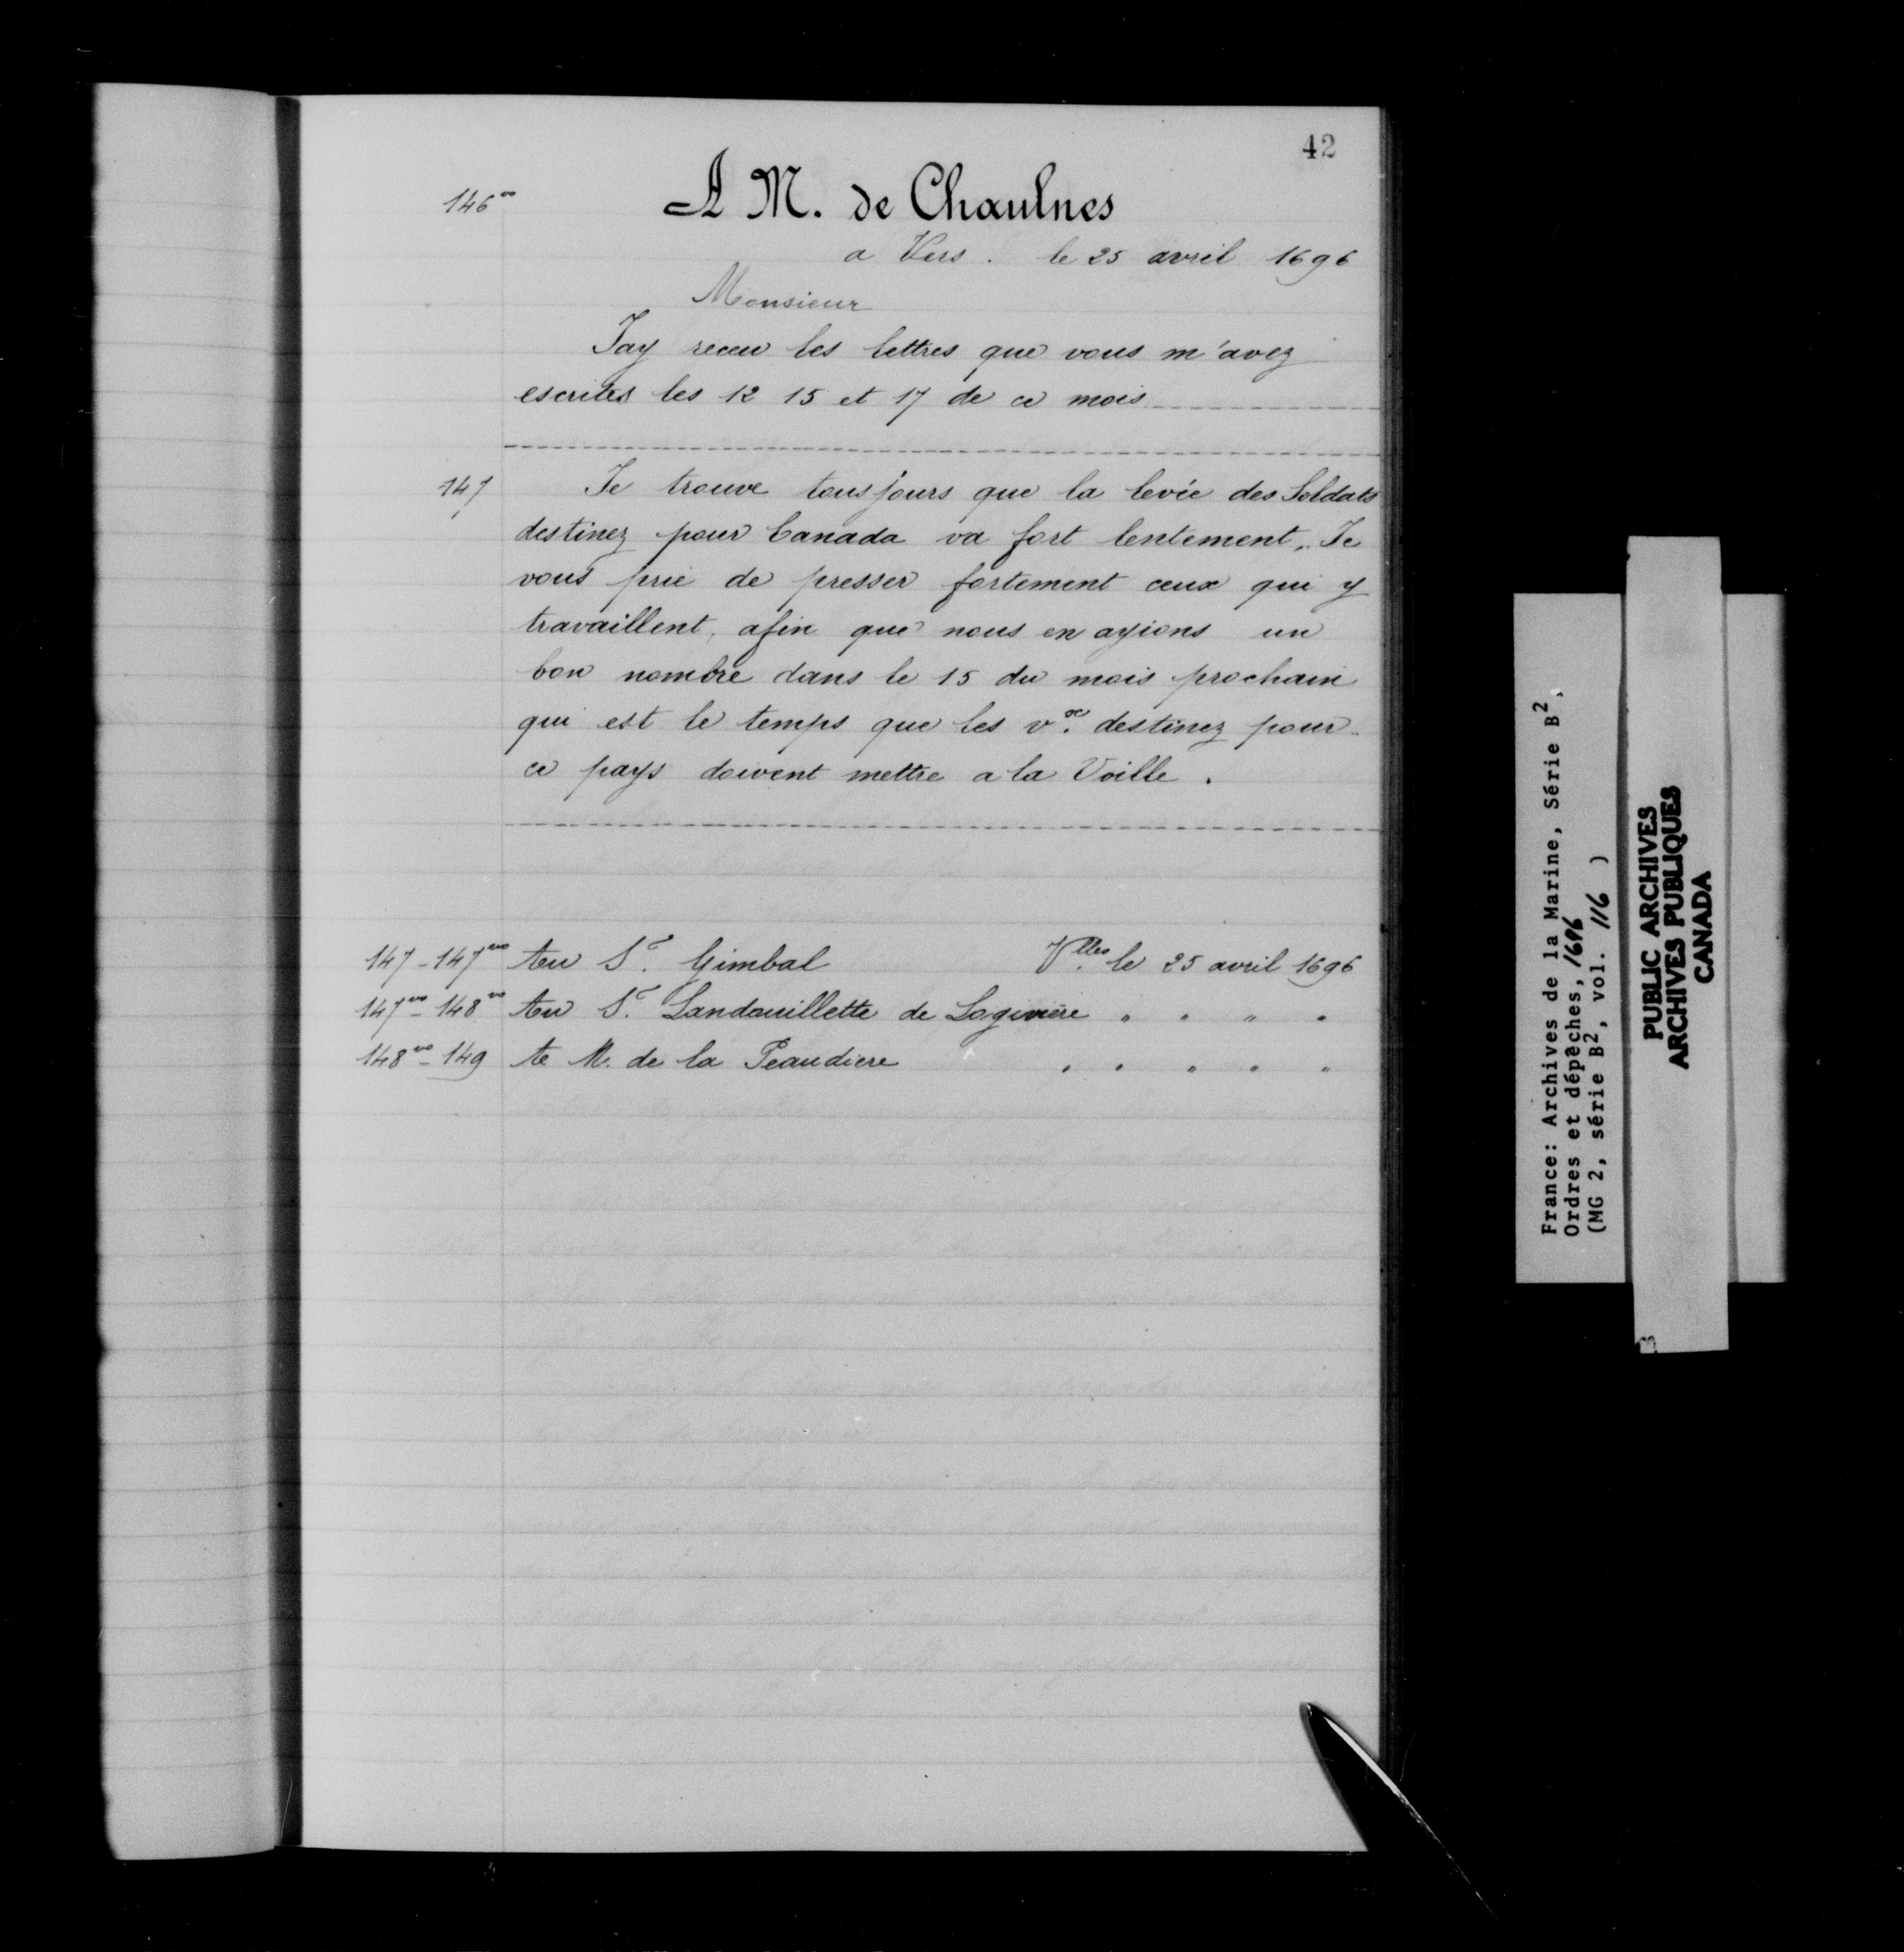 42
146vo
A M. de Chaulnes
a Vers. le 25 avril 1696
Monsieur
Jay receu les lettres que vous m'avez
escrites les 12 15 et 17 de ce mois
147
Je trouve tousjours que la levée des Soldats
destinez pour Canada va fort lentement, Je
vous prie de presser fortement ceux qui y
travaillent, afin que nous en ayions un
bon nombre dans le 15 du mois prochain
qui est le temps que les vx. destinez pour
ce pays doivent mettre a la Voille.
147-147vo Au Sr. Gimbal Vlles le 25 avril 1696
147vo-148vo Au Sr. Landouillette de Logiviere " " " "
148vo-149 A M. de la Peaudiere " " " " "
France: Archives de la Marine, Série B2,
Ordres et dépêches, 1696
(MG 2, série B2, vol. 116 )
PUBLIC ARCHIVES
ARCHIVES PUBLIQUES
CANADA